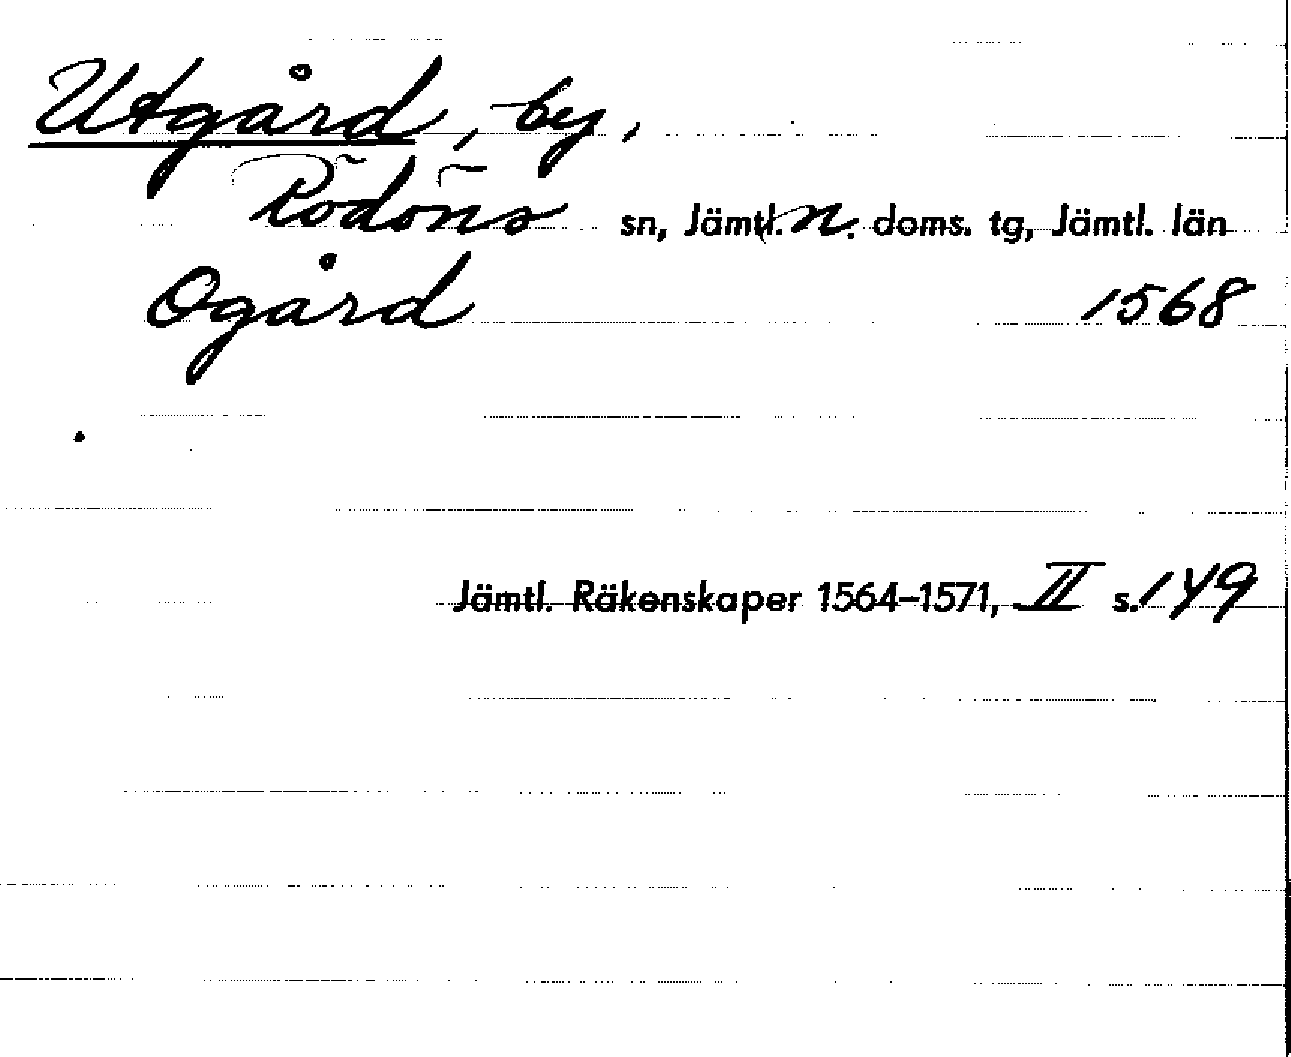 Utgård, by,
Rödöns sn, Jämtl. n. doms. tg, Jämtl. län
Ogård 1568
Jämtl. Räkenskaper 1564–1571, II s. 149